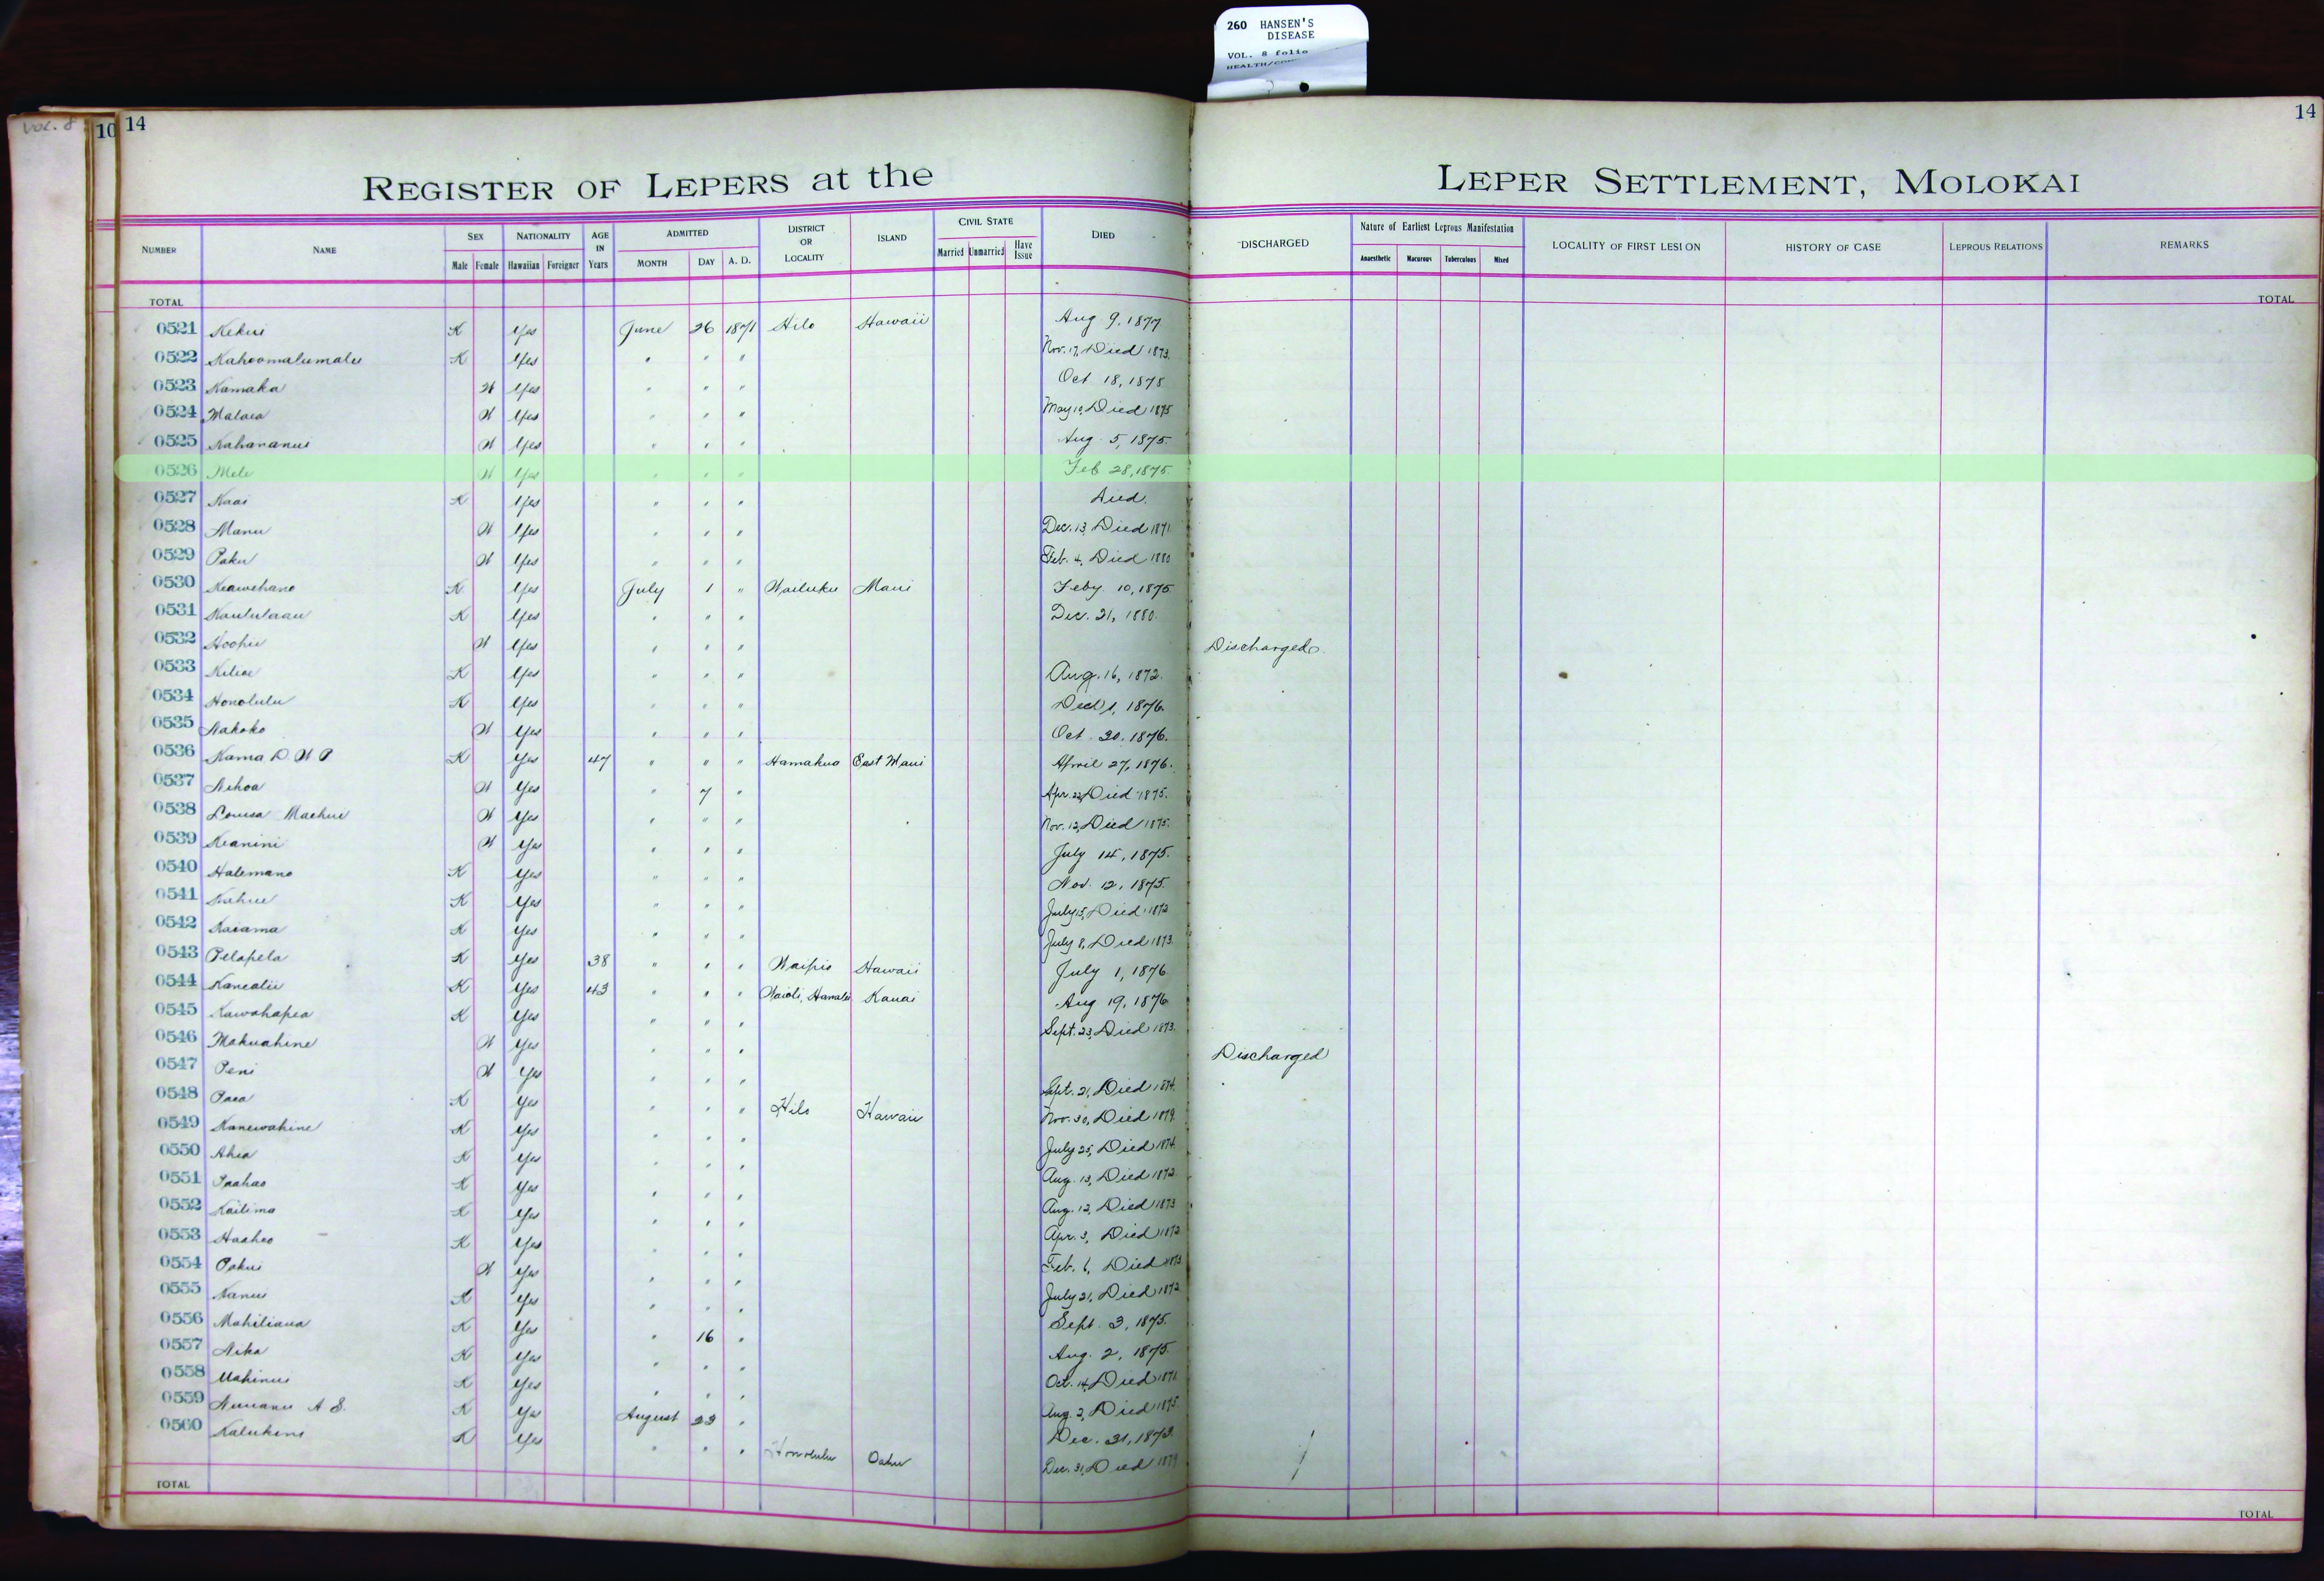 260 HANSEN'S
DISEASE
VOL. 8 folio
VOL. 8
10 14
14
REGISTER OF LEPERS at the LEPER SETTLEMENT, MOLOKAI
NUMBER NAME SEX NATIONALITY AGE IN Years ADMITTED DISTRICT OR LOCALITY ISLAND CIVIL STATE DIED DISCHARGED Nature of Earliest Leprous Manifestation LOCALITY OF FIRST LESION HISTORY OF CASE LEPROUS RELATIONS REMARKS
Male Female Hawaiian Foreigner MONTH DAY A. D. Married Unmarried Have Issue Anaesthetic Macurous Tuberculous Mixed
TOTAL TOTAL
0521 Kekui K Yes June 26 1871 Hilo Hawaii Aug 9, 1877
0522 Kahoomalumalu K Yes " " " Nov. 17, Died 1873.
0523 Kamaka W Yes " " " Oct 18, 1875
0524 Malaea W Yes " " " May 10, Died 1875
0525 Kahananui W Yes " " " Aug. 5, 1875.
0526 Mele W Yes " " " Feb 28, 1875.
0527 Kaai K Yes " " " Died.
0528 Manu W Yes " " " Dec. 13, Died 1871
0529 Paku W Yes " " " Feb. 4, Died 1880
0530 Keawehano K Yes July 1 " Wailuku Maui Feby 10, 1875
0531 Kaululaau K Yes " " " Dec. 21, 1880.
0532 Hoohii W Yes " " " Discharged.
0533 Kiliae K Yes " " " Aug. 16, 1872.
0534 Honolulu K Yes " " " 1, 1876.
0535 Nakoko W Yes " " " Oct 20, 1876.
0536 Kama D. W P K Yes 47 " " " Hamakua East Maui April 27, 1876.
0537 Nihoa W Yes " 7 " Apr. 22, Died 1875.
0538 Louisa Maehui W Yes " " " Nov. 12, Died 1875.
0539 Keanini W Yes " " " July 14, 1875.
0540 Halemano K Yes " " " Nov. 12, 1875.
0541 Kahue K Yes " " " July 15, Died 1872
0542 Kaiama K Yes " " " July 8, Died 1873.
0543 Pelapela K Yes 38 " " " Waipio Hawaii July 1, 1876
0544 Kanealii K Yes 43 " " " Waioli, Hanalei Kauai Aug 19, 1876
0545 Kawahapea K Yes " " " Sept. 23, Died 1873.
0546 Makuahine W Yes " " " Discharged
0547 Peni W Yes " " " Sept. 21, Died 1874.
0548 Paea K Yes " " " Hilo Hawaii Nov. 30, Died 1879.
0549 Kanewahine K Yes " " " July 25, Died 1874.
0550 Ahia K Yes " " " Aug. 13, Died 1872.
0551 Paahao K Yes " " " Aug. 12, Died 1873
0552 Kailima K Yes " " " Apr. 3, Died 1872
0553 Haaheo K Yes " " " Feb. 6, Died 1873
0554 Pakui W Yes " " " July 21, Died 1872
0555 Nanui K Yes " " " Sept. 3, 1875.
0556 Mahiliaua K Yes " 16 " Aug. 2, 1875.
0557 Nika K Yes " " " Oct. 14, Died 1871.
0558 Mahinui K Yes " " " Aug. 2, Died 1875.
0559 Nuuanu A S. K Yes August 23 " Dec. 31, 1873.
0560 Kalukini K Yes " " " Honolulu Oahu Dec. 31, Died 1879
TOTAL TOTAL